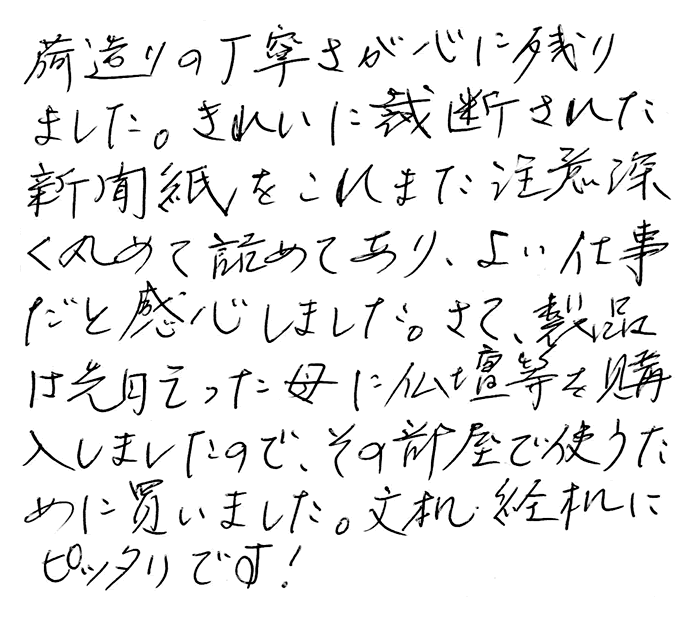 荷造りの丁寧さが心に残り
ました。きれいに裁断された
新聞紙をこれまた注意深
く丸めて詰めてあり、よい仕事
だと感心しました。さて、製品
は先月亡った母に仏壇等を購
入しましたので、その部屋で使うた
めに買いました。文机・経机に
ピッタリです!